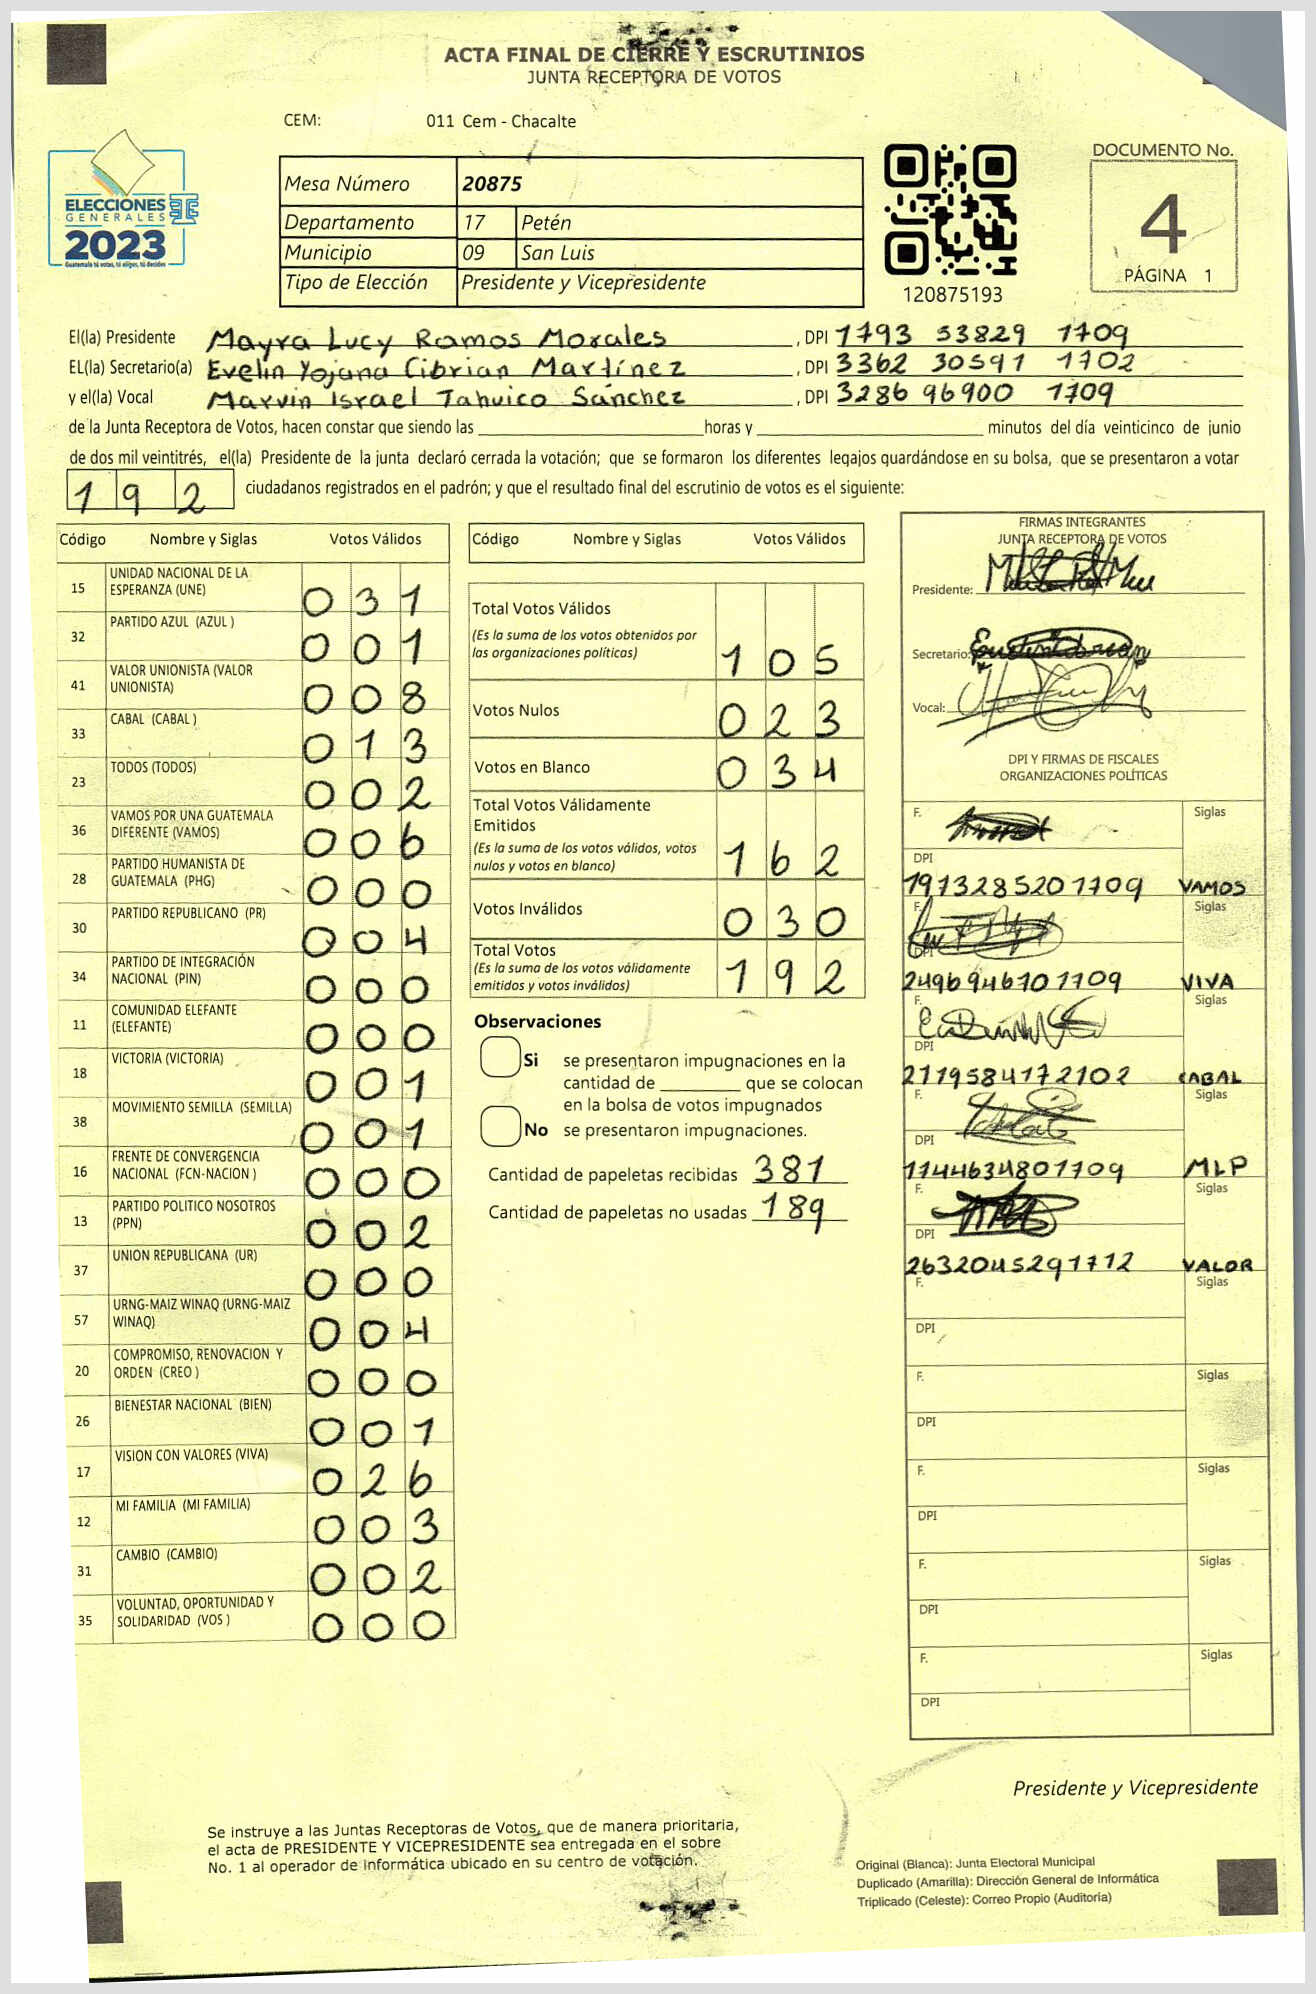 ACTA FINAL DE CIERRE Y ESCRUTINIOS
JUNTA RECEPTORA DE VOTOS
CEM: 011 Cem - Chacalte
ELECCIONES
GENERALES
2023
Guatemala tú votas, tú eliges, tú decides
Mesa Número 20875
Departamento 17 Petén
Municipio 09 San Luis
Tipo de Elección Presidente y Vicepresidente
120875193
DOCUMENTO No.
4
PÁGINA 1
El(la) Presidente Mayra Lucy Ramos Morales , DPI 1793 53829 1709
EL(la) Secretario(a) Evelin Yojana Cibrian Martínez , DPI 3362 30591 1702
y el(la) Vocal Marvin Israel Tahuico Sánchez , DPI 3286 96900 1709
de la Junta Receptora de Votos, hacen constar que siendo las horas y minutos del día veinticinco de junio
de dos mil veintitrés, el(la) Presidente de la junta declaró cerrada la votación; que se formaron los diferentes legajos guardándose en su bolsa, que se presentaron a votar
192 ciudadanos registrados en el padrón; y que el resultado final del escrutinio de votos es el siguiente:
Código Nombre y Siglas Votos Válidos
15 UNIDAD NACIONAL DE LA
ESPERANZA (UNE) 031
32 PARTIDO AZUL (AZUL ) 001
41 VALOR UNIONISTA (VALOR
UNIONISTA) 008
33 CABAL (CABAL ) 013
23 TODOS (TODOS) 002
36 VAMOS POR UNA GUATEMALA
DIFERENTE (VAMOS) 006
28 PARTIDO HUMANISTA DE
GUATEMALA (PHG) 000
30 PARTIDO REPUBLICANO (PR) 004
34 PARTIDO DE INTEGRACIÓN
NACIONAL (PIN) 000
11 COMUNIDAD ELEFANTE
(ELEFANTE) 000
18 VICTORIA (VICTORIA) 001
38 MOVIMIENTO SEMILLA (SEMILLA) 001
16 FRENTE DE CONVERGENCIA
NACIONAL (FCN-NACION ) 000
13 PARTIDO POLITICO NOSOTROS
(PPN) 002
37 UNION REPUBLICANA (UR) 000
57 URNG-MAIZ WINAQ (URNG-MAIZ
WINAQ) 004
20 COMPROMISO, RENOVACION Y
ORDEN (CREO ) 000
26 BIENESTAR NACIONAL (BIEN) 001
17 VISION CON VALORES (VIVA) 026
12 MI FAMILIA (MI FAMILIA) 003
31 CAMBIO (CAMBIO) 002
35 VOLUNTAD, OPORTUNIDAD Y
SOLIDARIDAD (VOS ) 000
Código Nombre y Siglas Votos Válidos
Total Votos Válidos
(Es la suma de los votos obtenidos por
las organizaciones políticas) 105
Votos Nulos 023
Votos en Blanco 034
Total Votos Válidamente
Emitidos
(Es la suma de los votos válidos, votos
nulos y votos en blanco) 162
Votos Inválidos 030
Total Votos
(Es la suma de los votos válidamente
emitidos y votos inválidos) 192
Observaciones
Si se presentaron impugnaciones en la
cantidad de que se colocan
en la bolsa de votos impugnados
No se presentaron impugnaciones.
Cantidad de papeletas recibidas 381
Cantidad de papeletas no usadas 189
FIRMAS INTEGRANTES
JUNTA RECEPTORA DE VOTOS
Presidente:
Secretario:
Vocal:
DPI Y FIRMAS DE FISCALES
ORGANIZACIONES POLÍTICAS
F. Siglas
DPI
1973285201709 VAMOS
F. Siglas
DPI
2496946701709 VIVA
F. Siglas
DPI
2119584172102 CABAL
F. Siglas
DPI
1744634801709 MLP
F. Siglas
DPI
2632045291712 VALOR
F. Siglas
DPI
F. Siglas
DPI
F. Siglas
DPI
F. Siglas
DPI
F. Siglas
DPI
Presidente y Vicepresidente
Se instruye a las Juntas Receptoras de Votos, que de manera prioritaria,
el acta de PRESIDENTE Y VICEPRESIDENTE sea entregada en el sobre
No. 1 al operador de informática ubicado en su centro de votación.
Original (Blanca): Junta Electoral Municipal
Duplicado (Amarilla): Dirección General de Informática
Triplicado (Celeste): Correo Propio (Auditoria)